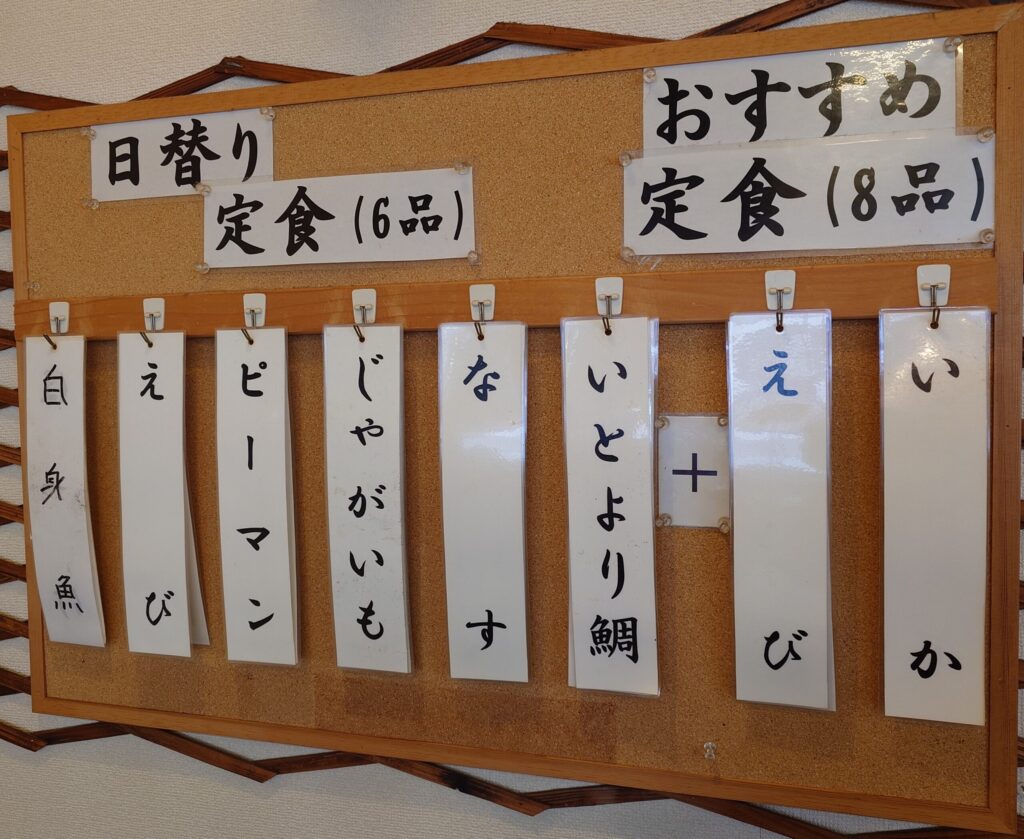 日替り
定食(6品)
おすすめ
定食(8品)
白身魚
えび
ピーマン
じゃがいも
なす
いとより鯛
+
えび
いか